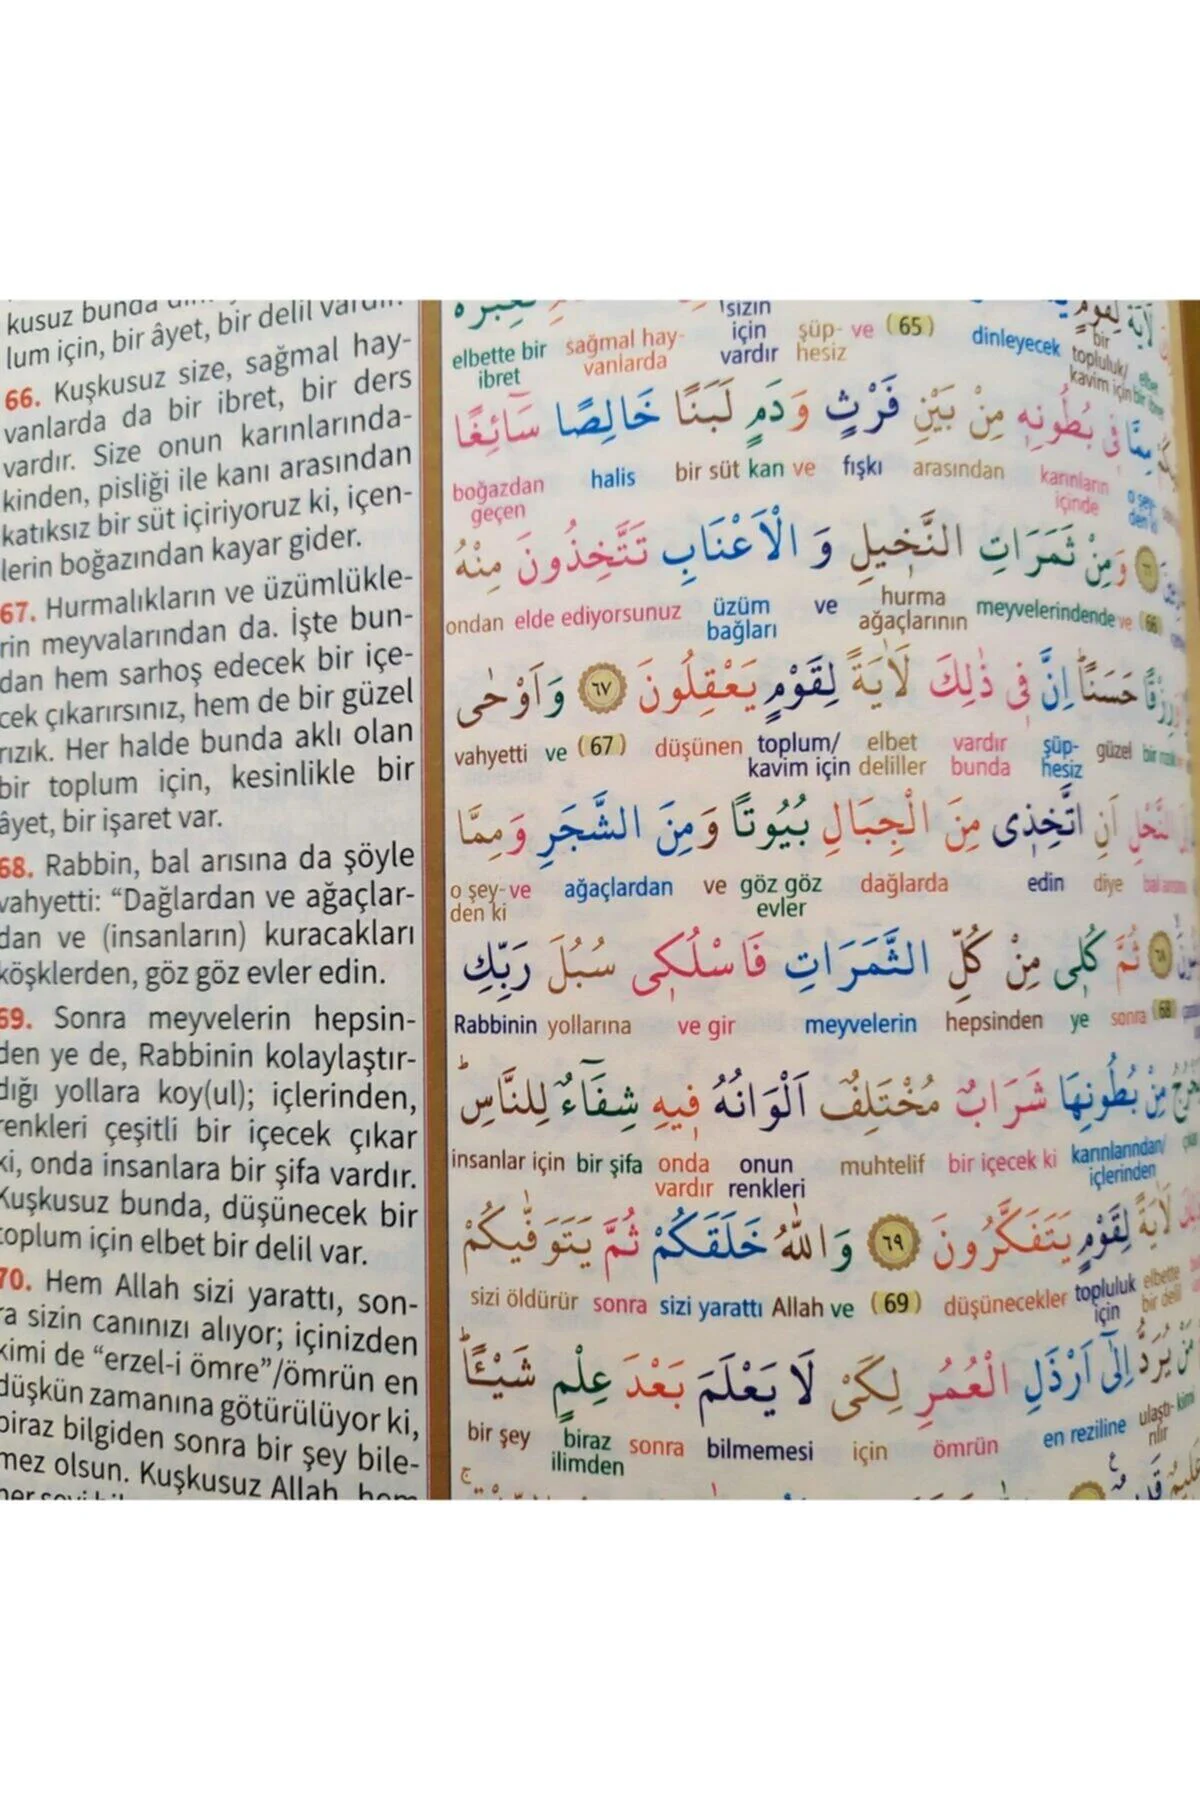 kusuz bunda
lum için, bir âyet, bir delil vardır.
66. Kuşkusuz size, sağmal hay-
vanlarda da bir ibret, bir ders
vardır. Size onun karınlarında-
kinden, pisliği ile kanı arasından
katıksız bir süt içiriyoruz ki, içen-
lerin boğazından kayar gider.
67. Hurmalıkların ve üzümlükle-
rin meyvalarından da. İşte bun-
dan hem sarhoş edecek bir içe-
cek çıkarırsınız, hem de bir güzel
rızık. Her halde bunda aklı olan
bir toplum için, kesinlikle bir
âyet, bir işaret var.
68. Rabbin, bal arısına da şöyle
vahyetti: “Dağlardan ve ağaçlar-
dan ve (insanların) kuracakları
köşklerden, göz göz evler edin.
69. Sonra meyvelerin hepsin-
den ye de, Rabbinin kolaylaştır-
dığı yollara koy(ul); içlerinden,
renkleri çeşitli bir içecek çıkar
ki, onda insanlara bir şifa vardır.
Kuşkusuz bunda, düşünecek bir
toplum için elbet bir delil var.
70. Hem Allah sizi yarattı, son-
ra sizin canınızı alıyor; içinizden
kimi de “erzel-i ömre”/ömrün en
düşkün zamanına götürülüyor ki,
biraz bilgiden sonra bir şey bile-
mez olsun. Kuşkusuz Allah, hem
لَاٰيَةً لِقَوْمٍ
elbette bir ibret sağmal hay-vanlarda sizin için vardır şüp-hesiz ve (65) dinleyecek bir topluluk/kavim için elbet bir ibret
مِمَّا فٖي بُطُونِهٖ مِنْ بَيْنِ فَرْثٍ وَدَمٍ لَبَنًا خَالِصًا سَٓائِغًا
boğazdan geçen halis bir süt kan ve fışkı arasından karınların içinde o şey-den ki
وَمِنْ ثَمَرَاتِ النَّخٖيلِ وَ الْاَعْنَابِ تَتَّخِذُونَ مِنْهُ
ondan elde ediyorsunuz üzüm bağları ve hurma ağaçlarının meyvelerindende ve (66)
حَسَنًاؕ اِنَّ فٖي ذٰلِكَ لَاٰيَةً لِقَوْمٍ يَعْقِلُونَ ﴿٦٧﴾ وَاَوْحٰى
vahyetti ve (67) düşünen toplum/kavim için elbet deliller vardır bunda şüp-hesiz güzel bir rızık
النَّحْلِ اَنِ اتَّخِذٖي مِنَ الْجِبَالِ بُيُوتًا وَمِنَ الشَّجَرِ وَمِمَّا
o şey-den ki ve ağaçlardan ve göz göz evler dağlarda edin diye bal arısına
﴿٦٨﴾ ثُمَّ كُلٖي مِنْ كُلِّ الثَّمَرَاتِ فَاسْلُكٖي سُبُلَ رَبِّكِ
Rabbinin yollarına ve gir meyvelerin hepsinden ye sonra (68)
مِنْ بُطُونِهَا شَرَابٌ مُخْتَلِفٌ اَلْوَانُهُ فٖيهِ شِفَٓاءٌ لِلنَّاسِؕ
insanlar için bir şifa onda vardır onun renkleri muhtelif bir içecek ki karınlarından/içlerinden
لَاٰيَةً لِقَوْمٍ يَتَفَكَّرُونَ ﴿٦٩﴾ وَاللّٰهُ خَلَقَكُمْ ثُمَّ يَتَوَفّٰيكُمْ
sizi öldürür sonra sizi yarattı Allah ve (69) düşünecekler topluluk için elbette bir delil
مَنْ يُرَدُّ اِلٰٓى اَرْذَلِ الْعُمُرِ لِكَيْ لَا يَعْلَمَ بَعْدَ عِلْمٍ شَيْـًٔاؕ
bir şey biraz ilimden sonra bilmemesi için ömrün en reziline ulaştı-rılır kimi